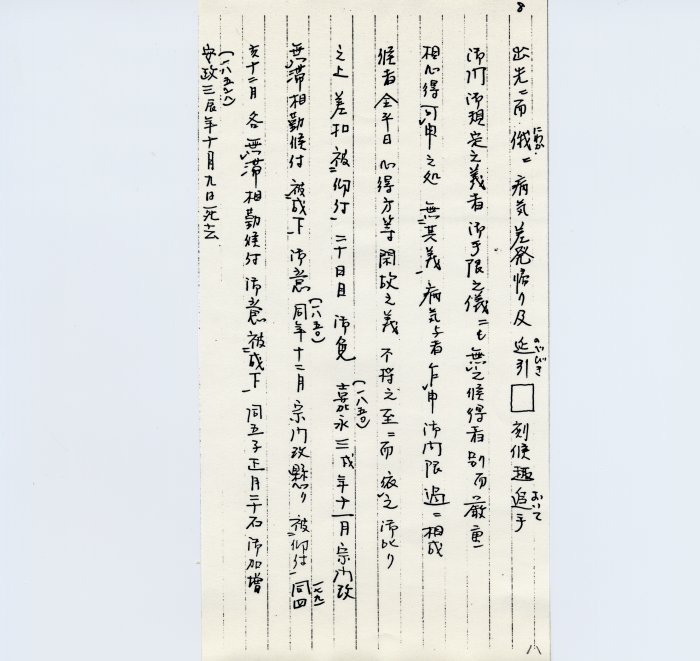 8
出先ニ而 俄ニ 病気差発帰り及 延引 □ 刻候趣 追手
御門御規定之義者 御手限之儀ニも無之候得者 別而厳重
相心得可申之処 無其義 病気与者乍申 御門限過ニ相成
候者 全平日心得方等閑故之義 不埒之至ニ而 依之御叱り
之上 差扣被仰付 二十日目 御免 嘉永三戌年十一月宗門改
無滞相勤候付 被成下 御意 同年十二月宗門改懸り 被仰付 同四
亥十二月 各無滞相勤候付 御意被成下 同五子正月二十石御加増
安政三辰年十月九日死去
八